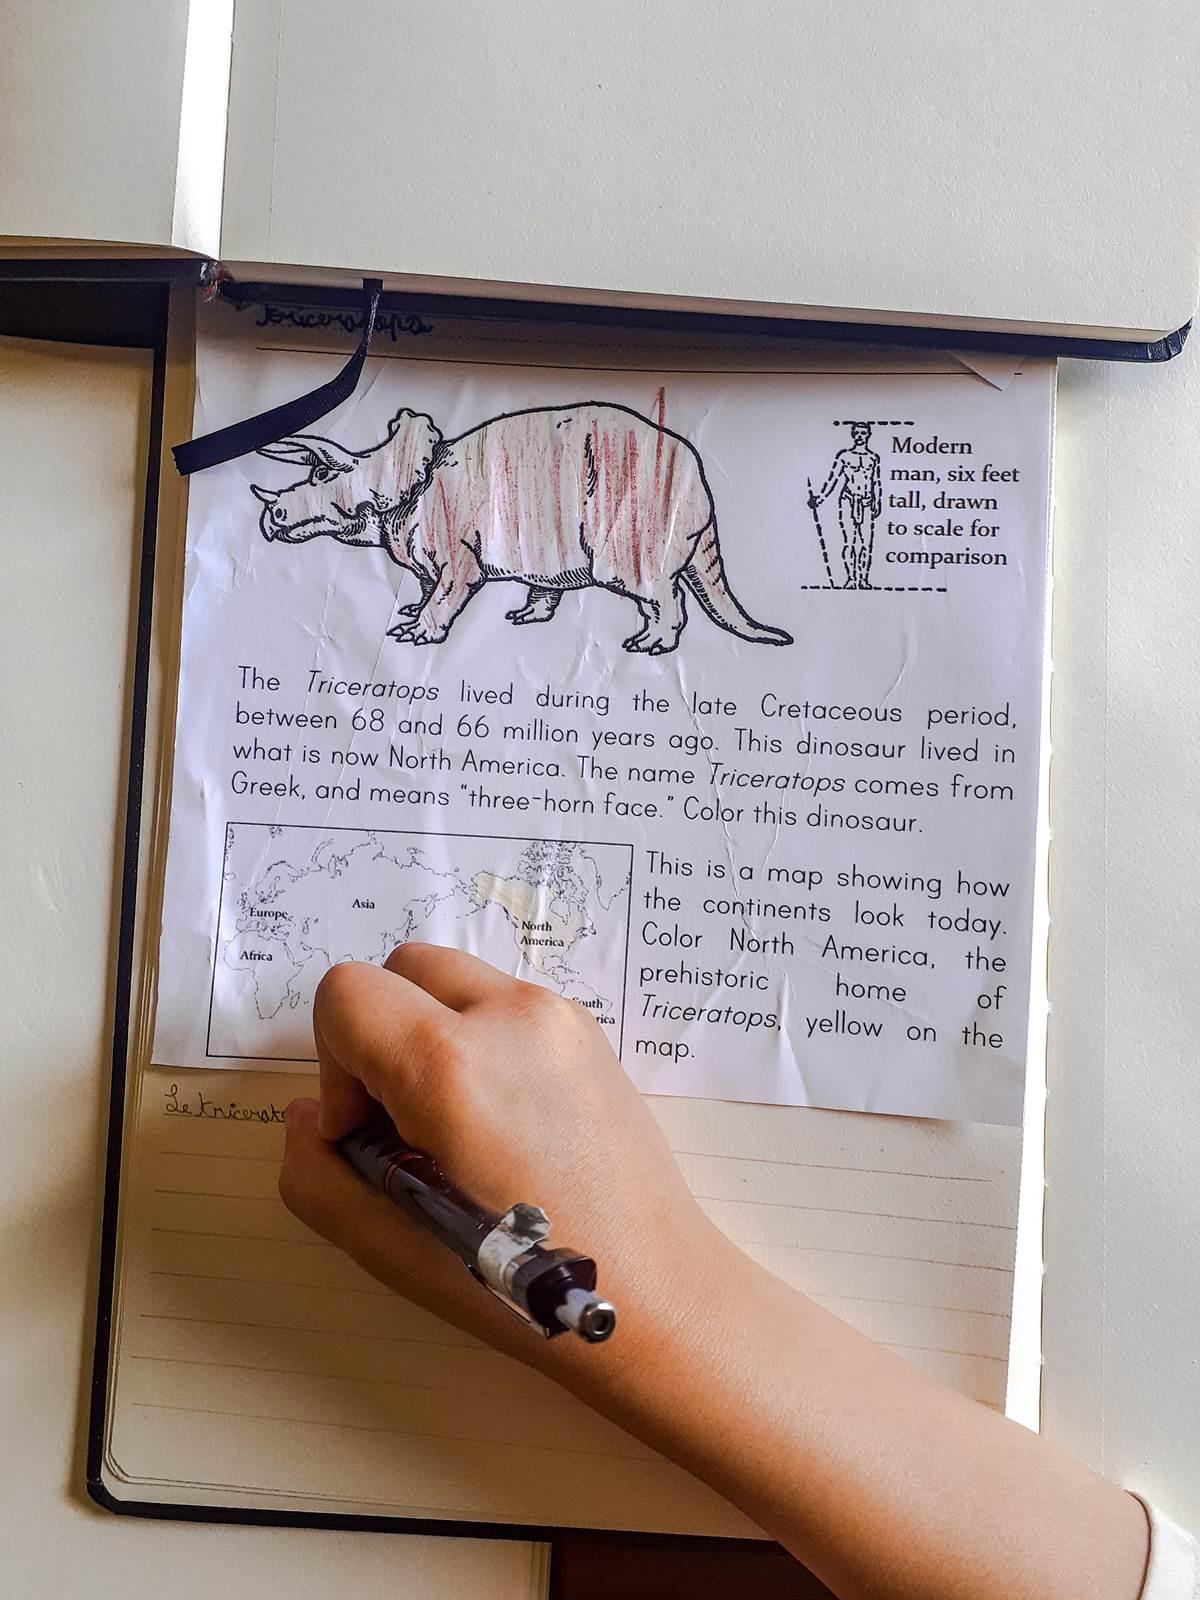 triceratops
Modern
man, six feet
tall, drawn
to scale for
comparison
The Triceratops lived during the late Cretaceous period,
between 68 and 66 million years ago. This dinosaur lived in
what is now North America. The name Triceratops comes from
Greek, and means "three-horn face." Color this dinosaur.
Europe
Asia
Africa
North
America
South
rica
This is a map showing how
the continents look today.
Color North America, the
prehistoric home of
Triceratops, yellow on the
map.
Le tricerato